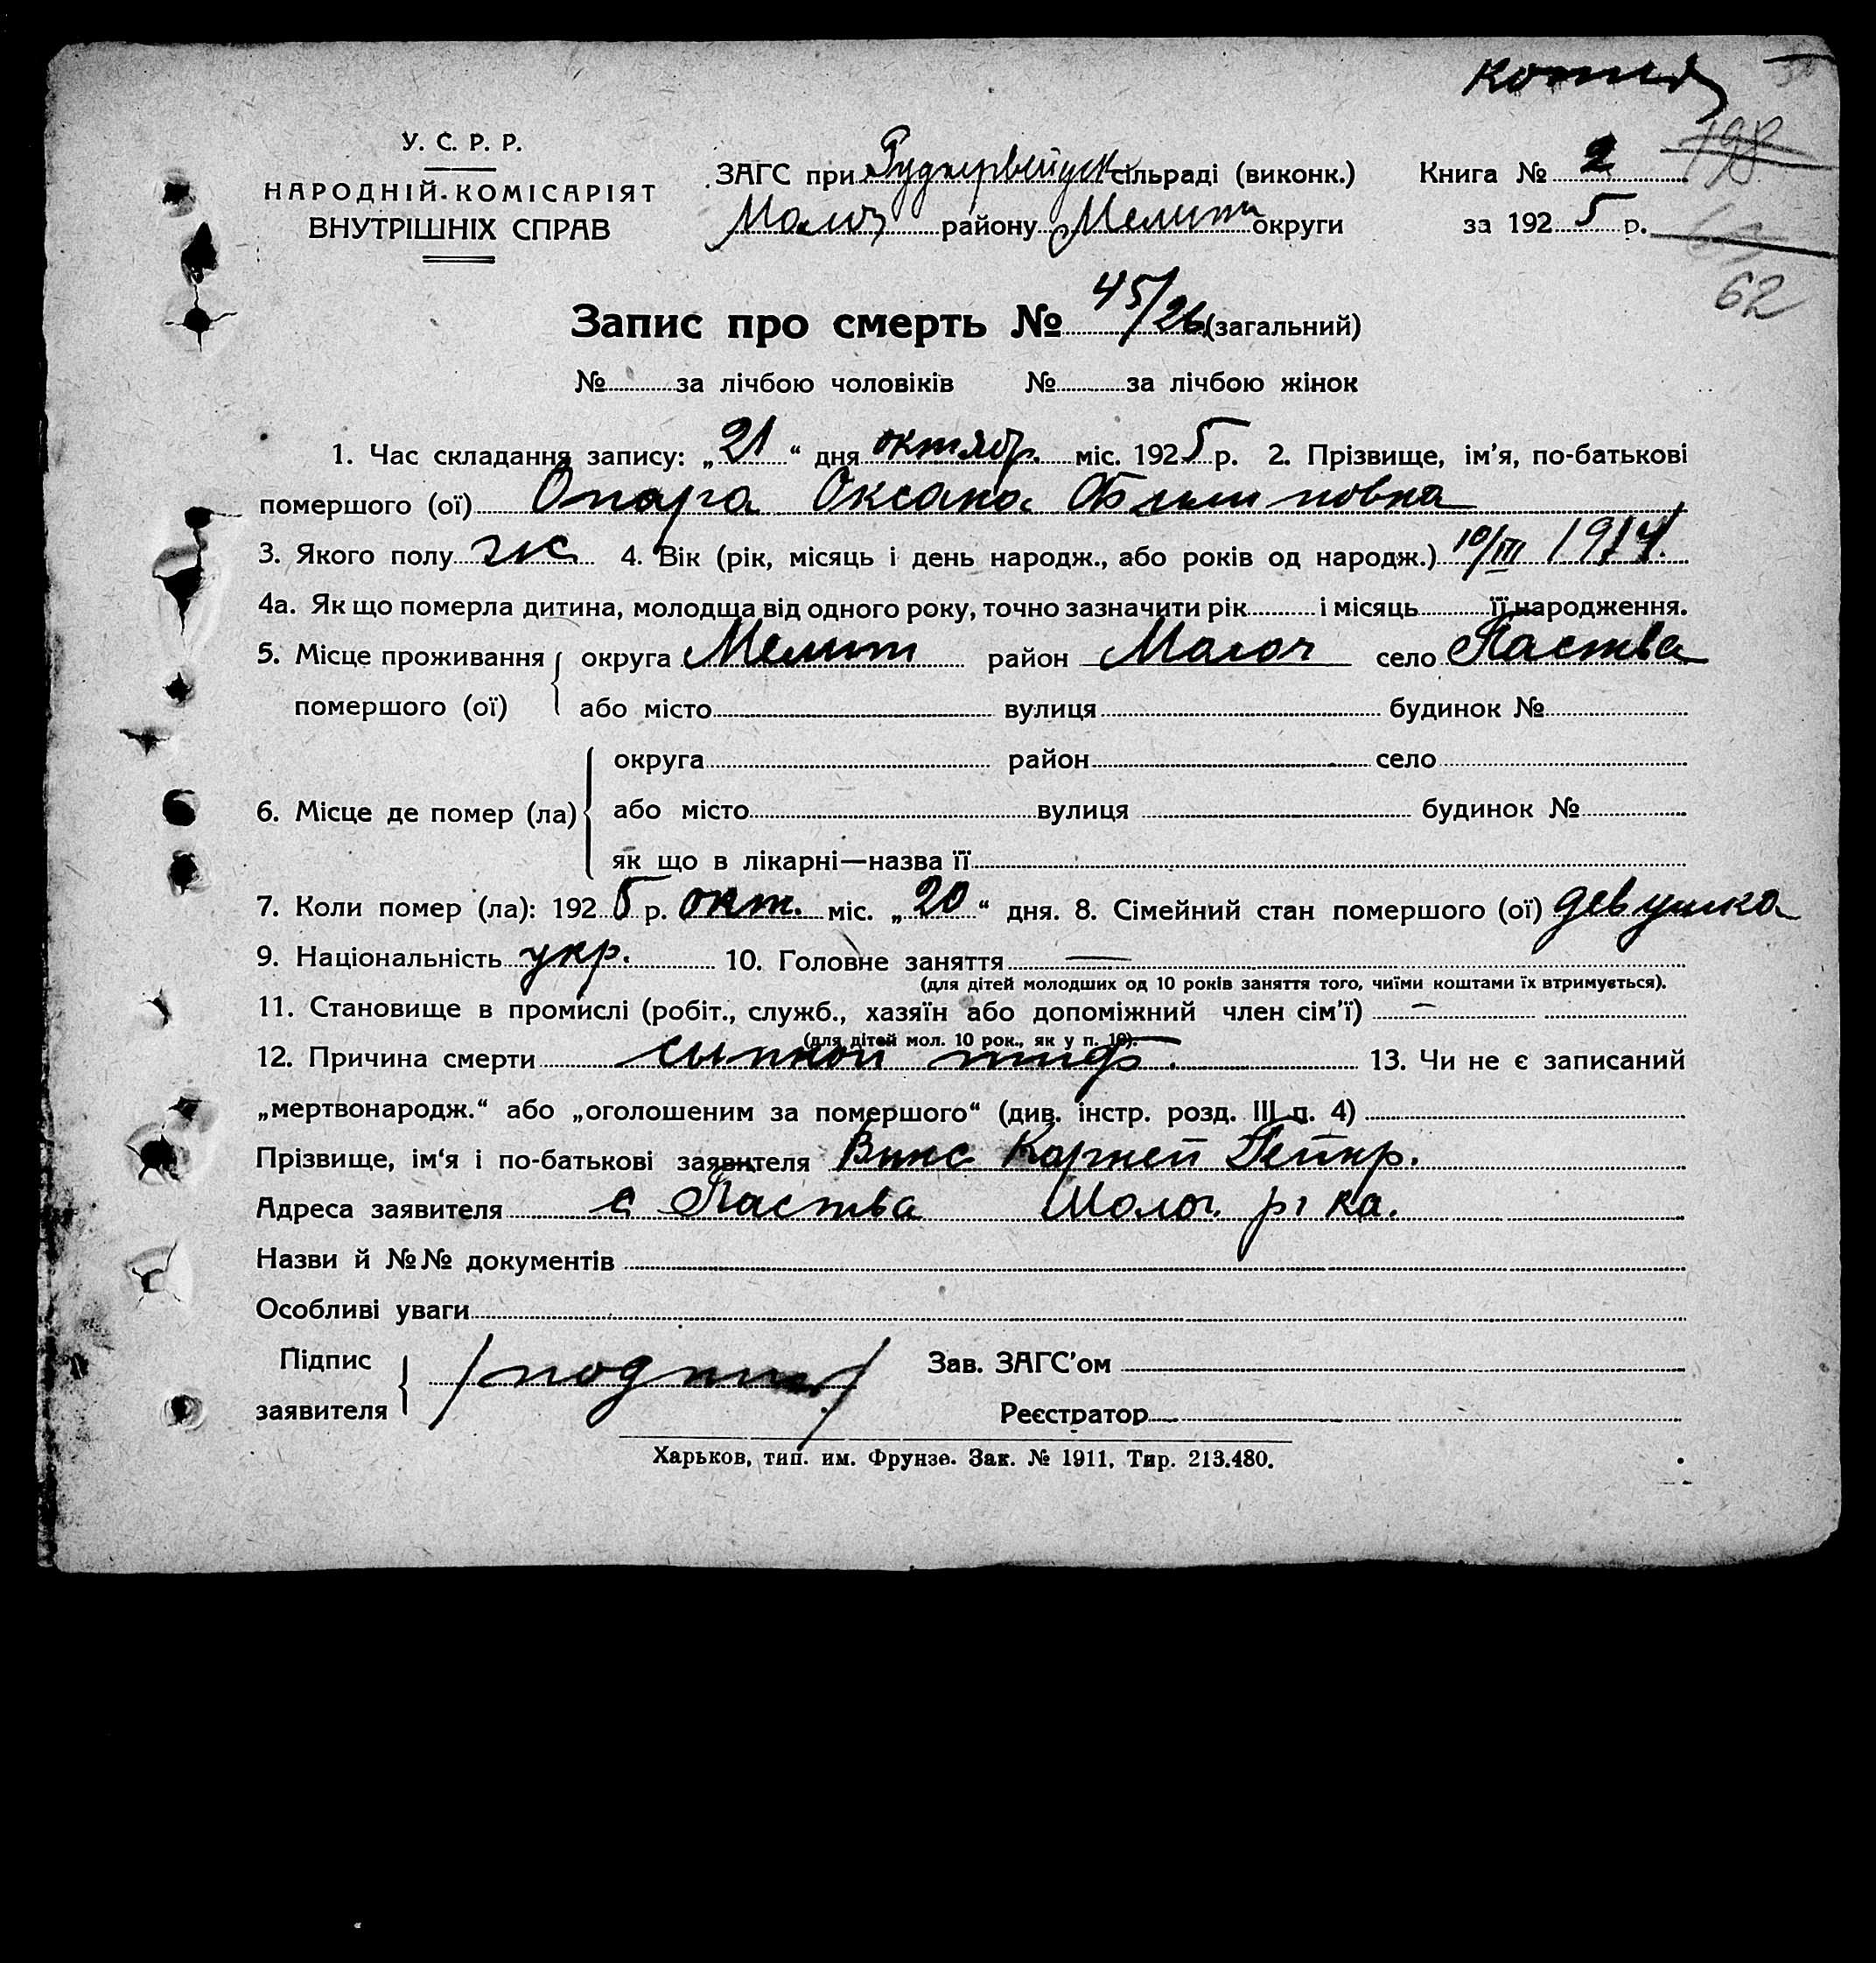 копия
У. С. Р. Р.
НАРОДНІЙ КОМІСАРІЯТ
ВНУТРІШНІХ СПРАВ
ЗАГС при Руднервейдск сільраді (виконк.)
Молоч району Мелит округи
Книга № 2
за 1925 р.
198
61
62
Запис про смерть № 45/26 (загальний)
№ за лічбою чоловіків № за лічбою жінок
1. Час складання запису: „21“ дня октябр. міс. 1925 р. 2. Прізвище, ім'я, по-батькові
помершого (ої) Опара Оксана Филиповна
3. Якого полу ж 4. Вік (рік, місяць і день народж., або років од народж.) 10/III 1914.
4а. Як що померла дитина, молодща від одного року, точно зазначити рік і місяць її народження.
5. Місце проживання помершого (ої) округа Мелит район Молоч село Паства
або місто вулиця будинок №
6. Місце де помер (ла) округа район село
або місто вулиця будинок №
як що в лікарні—назва її
7. Коли помер (ла): 1925 р. окт. міс. „20“ дня. 8. Сімейний стан помершого (ої) девушка
9. Національність укр. 10. Головне заняття —
(для дітей молодших од 10 років заняття того, чиїми коштами їх втримується).
11. Становище в промислі (робіт., служб., хазяїн або допоміжний член сім'ї) —
(для дітей мол. 10 рок., як у п. 10).
12. Причина смерти сыпной тиф. 13. Чи не є записаний
„мертвонародж.“ або „оголошеним за помершого“ (див. інстр. розд. III п. 4)
Прізвище, ім'я і по-батькові заявителя Винс Корней Петр.
Адреса заявителя с Паства Молоч. р-ка.
Назви й №№ документів
Особливі уваги
Підпис заявителя /подпись/ Зав. ЗАГС'ом
Реєстратор
Харьков, тип. им. Фрунзе. Зак. № 1911, Тир. 213.480.